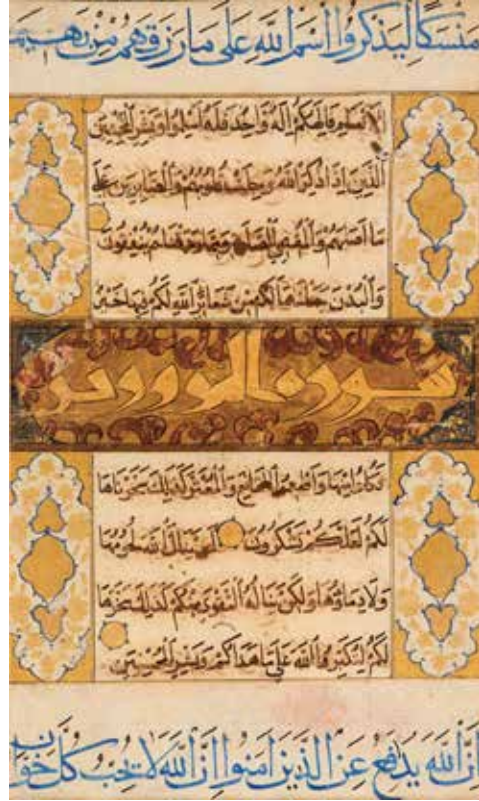 مَنْسَكًا لِيَذْكُرُوا اسْمَ اللهِ عَلَى مَا رَزَقَهُمْ مِنْ بَهِيمَةِ
الْأَنْعَامِ فَإِلَهُكُمْ إِلَهٌ وَاحِدٌ فَلَهُ أَسْلِمُوا وَبَشِّرِ الْمُخْبِتِينَ
الَّذِينَ إِذَا ذُكِرَ اللهُ وَجِلَتْ قُلُوبُهُمْ وَالصَّابِرِينَ عَلَى
مَا أَصَابَهُمْ وَالْمُقِيمِي الصَّلَوةِ وَمِمَّا رَزَقْنَاهُمْ يُنْفِقُونَ
وَالْبُدْنَ جَعَلْنَاهَا لَكُمْ مِنْ شَعَائِرِ اللهِ لَكُمْ فِيهَا خَيْرٌ
فَكُلُوا مِنْهَا وَأَطْعِمُوا الْقَانِعَ وَالْمُعْتَرَّ كَذَلِكَ سَخَّرْنَاهَا
لَكُمْ لَعَلَّكُمْ تَشْكُرُونَ لَنْ يَنَالَ اللهَ لُحُومُهَا
وَلَا دِمَاؤُهَا وَلَكِنْ يَنَالُهُ التَّقْوَى مِنْكُمْ كَذَلِكَ سَخَّرَهَا
لَكُمْ لِتُكَبِّرُوا اللهَ عَلَى مَا هَدَاكُمْ وَبَشِّرِ الْمُحْسِنِينَ
إِنَّ اللهَ يَدْفَعُ عَنِ الَّذِينَ امَنُوا إِنَّ اللهَ لَا يُحِبُّ كُلَّ خَوَّانٍ